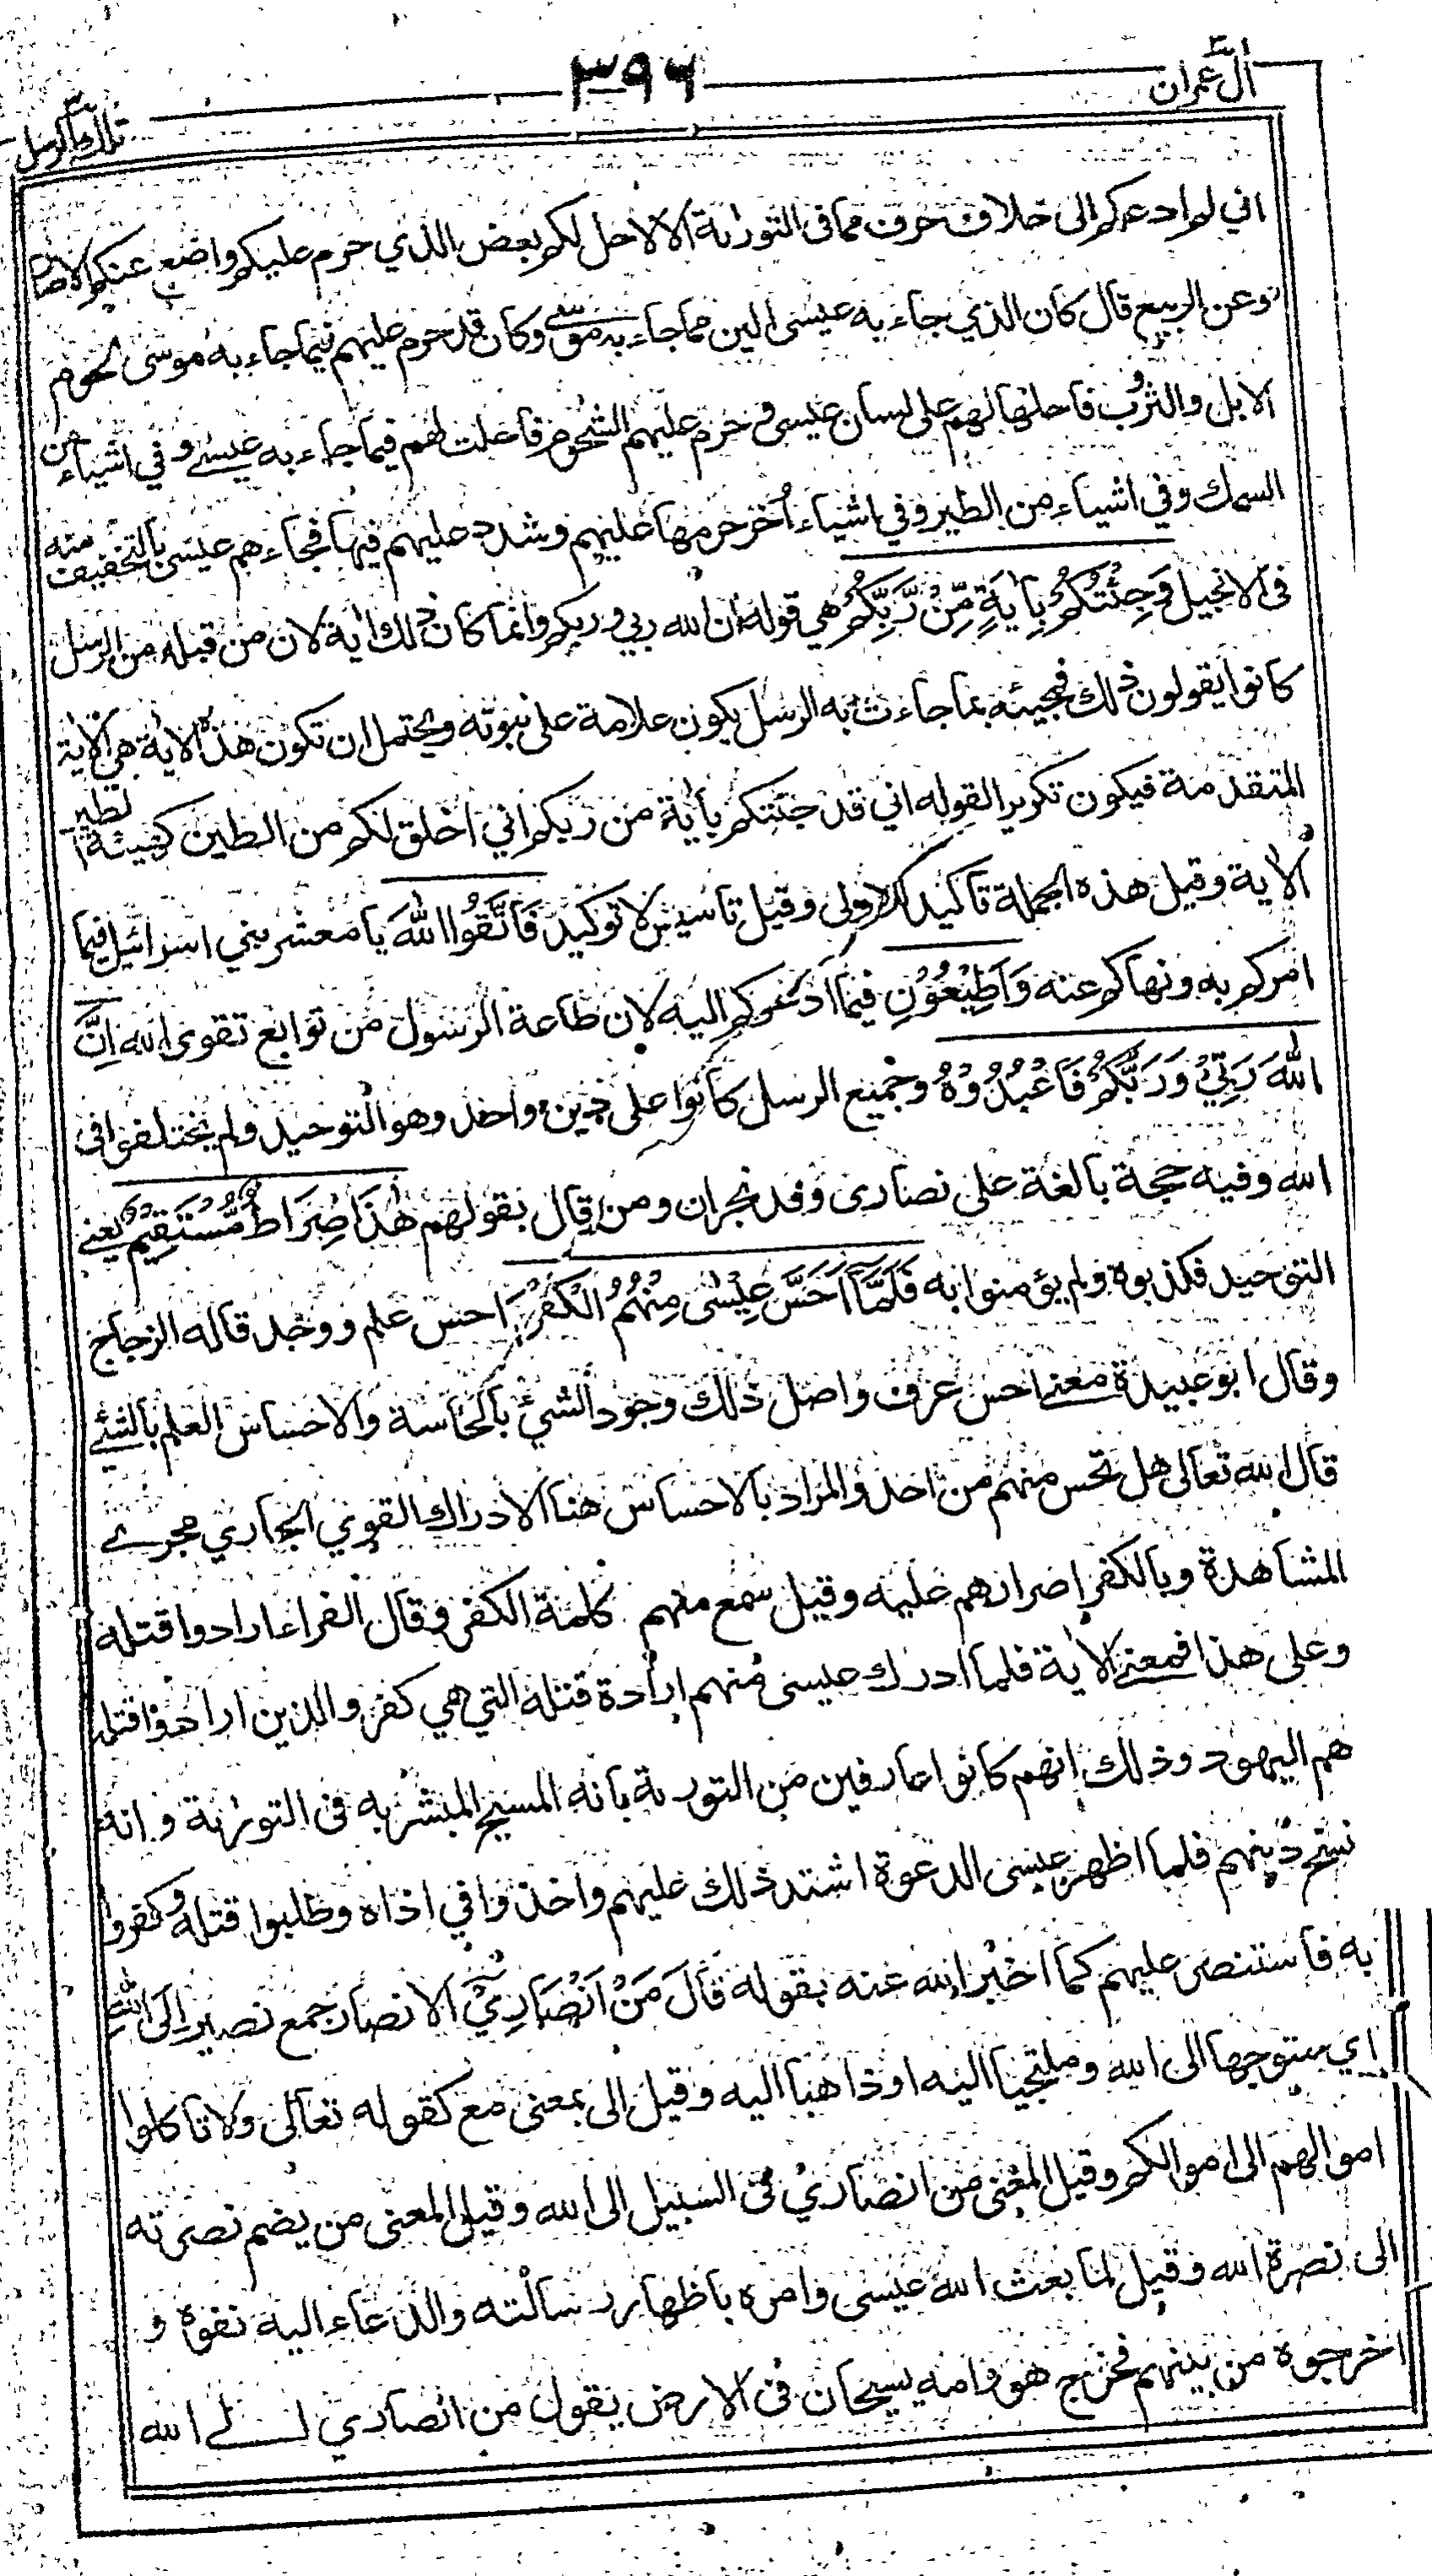 اٰل عمران
٣٩٦
تلك الرسل
اني لم ادعكم الى خلاف حرف مما فى التورٰىة الا لاحل لكم بعض الذي حرم عليكم واضع عنكم الاصار
وعن الربيع قال كان الذي جاء به عيسى الين مما جاء به موسى وكان قد حرم عليهم فيما جاء به موسى لحوم
الابل والثرُب فاحلها لهم على لسان عيسى وحرم عليهم الشحوم فاحلت لهم فيما جاء به عيسے وفي اشياء من
السمك وفي اشياء من الطير وفي اشياء اُخر حرمها عليهم وشدد عليهم فيها فجاءهم عيسى بالتخفيف منه
فى الانجيل وَجِئْتُكُمْ بِاٰيَةٍ مِّنْ رَّبِّكُمْ هي قوله ان الله ربي وربكم وانما كان ذلك اٰية لان من قبله من الرسل
كانوا يقولون ذلك فمجيئه بما جاءت به الرسل يكون علامة على نبوته ويحتمل ان تكون هذه الاٰية هي الاٰية
المتقدمة فيكون تكريرا لقوله اني قد جئتكم باٰية من ربكم اني اخلق لكم من الطين كهيئة الطير
الاٰية وقيل هذه الجملة تاكيد للاولى وقيل تاسيس لا توكيد فَاتَّقُوا اللّٰهَ يا معشر بني اسرائيل فيما
امركم به ونهاكم عنه وَاَطِيْعُوْنِ فيما ادعوكم اليه لان طاعة الرسول من توابع تقوى الله اِنَّ
اللّٰهَ رَبِّيْ وَرَبُّكُمْ فَاعْبُدُوْهُ وجميع الرسل كانوا على دين واحد وهو التوحيد ولم يختلفوا فى
الله وفيه حجة بالغة على نصارى وفد نجران ومن قال بقولهم هٰذَا صِرَاطٌ مُّسْتَقِيْمٌ يعنے
التوحيد فكذبوه ولم يؤمنوا به فَلَمَّآ اَحَسَّ عِيْسٰى مِنْهُمُ الْكُفْرَ احس علم ووجد قاله الزجاج
وقال ابو عبيدة معنے احس عرف واصل ذلك وجود الشيء بالحاسة والاحساس العلم بالشئے
قال الله تعالى هل تحس منهم من احد والمراد بالاحساس هنا الادراك القوي الجاري مجرے
المشاهدة وبالكفر اصرارهم عليه وقيل سمع منهم كلمة الكفر وقال الفراء ارادوا قتله
وعلى هذا فمعنے الاٰية فلما ادرك عيسى منهم ارادة قتله التي هي كفر والذين ارادوا قتله
هم اليهود وذلك انهم كانوا عارفين من التورىة بانه المسيح المبشر به فى التورٰىة وانه
نسخ دينهم فلما اظهر عيسى الدعوة اشتد ذلك عليهم واخذوا في اذاه وطلبوا قتله وكفروا
به فاستنصر عليهم كما اخبر الله عنه بقوله قَالَ مَنْ اَنْصَارِيْٓ الانصار جمع نصير اِلَى اللّٰهِ
اي متوجها الى الله وملتجيا اليه او ذاهبا اليه وقيل الى بمعنى مع كقوله تعالى ولا تاكلوا
اموالهم الى اموالكم وقيل المعنى من انصاري فى السبيل الى الله وقيل المعنى من يضم نصرته
الى نصرة الله وقيل لما بعث الله عيسى وامره باظهار رسالته والدعاء اليه نفوه و
اخرجوه من بينهم فخرج هو وامه يسيحان فى الارض يقول من انصاري الے الله